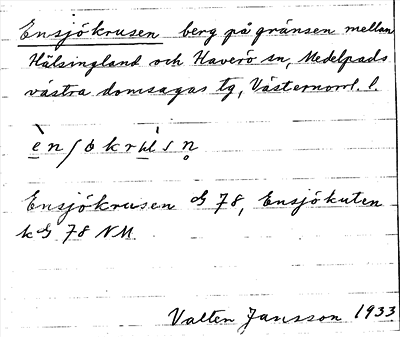 Ensjökrusen berg på gränsen mellan
Hälsingland och Haverö sn, Medelpads
västra domsagas tg, Västernorrl. l.
Ensjökrusen GS 78, Ensjökuten
k GS 78 NM.
Valten Jansson 1933